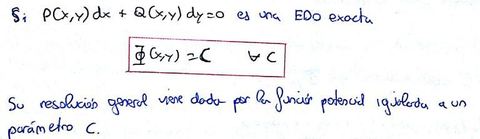 Si P(x,y)dx + Q(x,y)dy=0 es una EDO exacta
Φ(x,y) = C ∀ C
Su resolución general viene dada por la función potencial igualada a un
parámetro C.